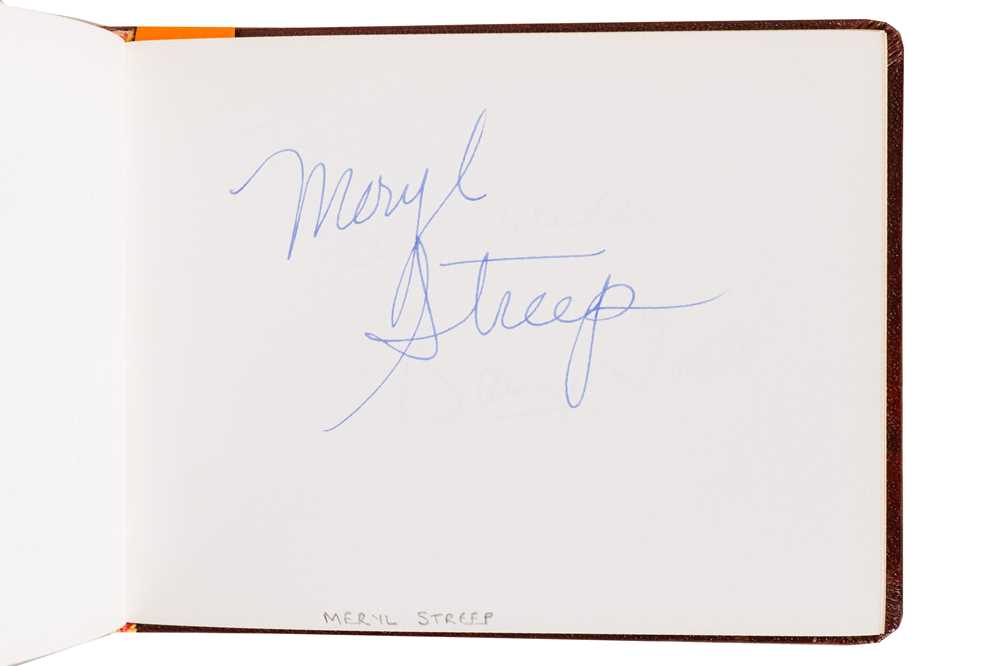 Meryl
Streep
MERYL STREEP